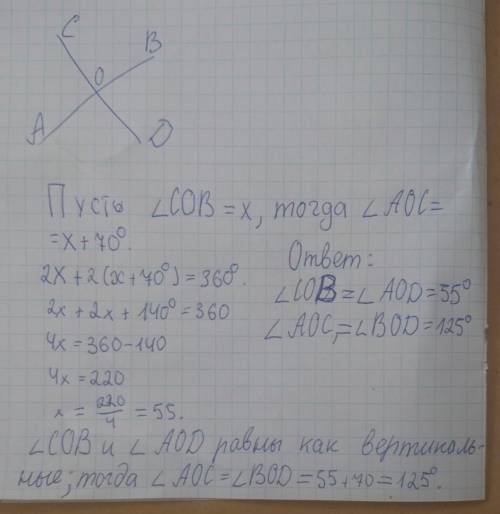 C
B
O
A
D
Пусть ∠COB = x, тогда ∠AOC =
= x + 70°.
2x + 2(x + 70°) = 360°.
2x + 2x + 140° = 360
4x = 360 - 140
4x = 220
x = 220/4 = 55.
Ответ:
∠COB = ∠AOD = 55°
∠AOC, = ∠BOD = 125°
∠COB и ∠AOD равны как вертиколь-
ные; тогда ∠AOC = ∠BOD = 55 + 70 = 125°.